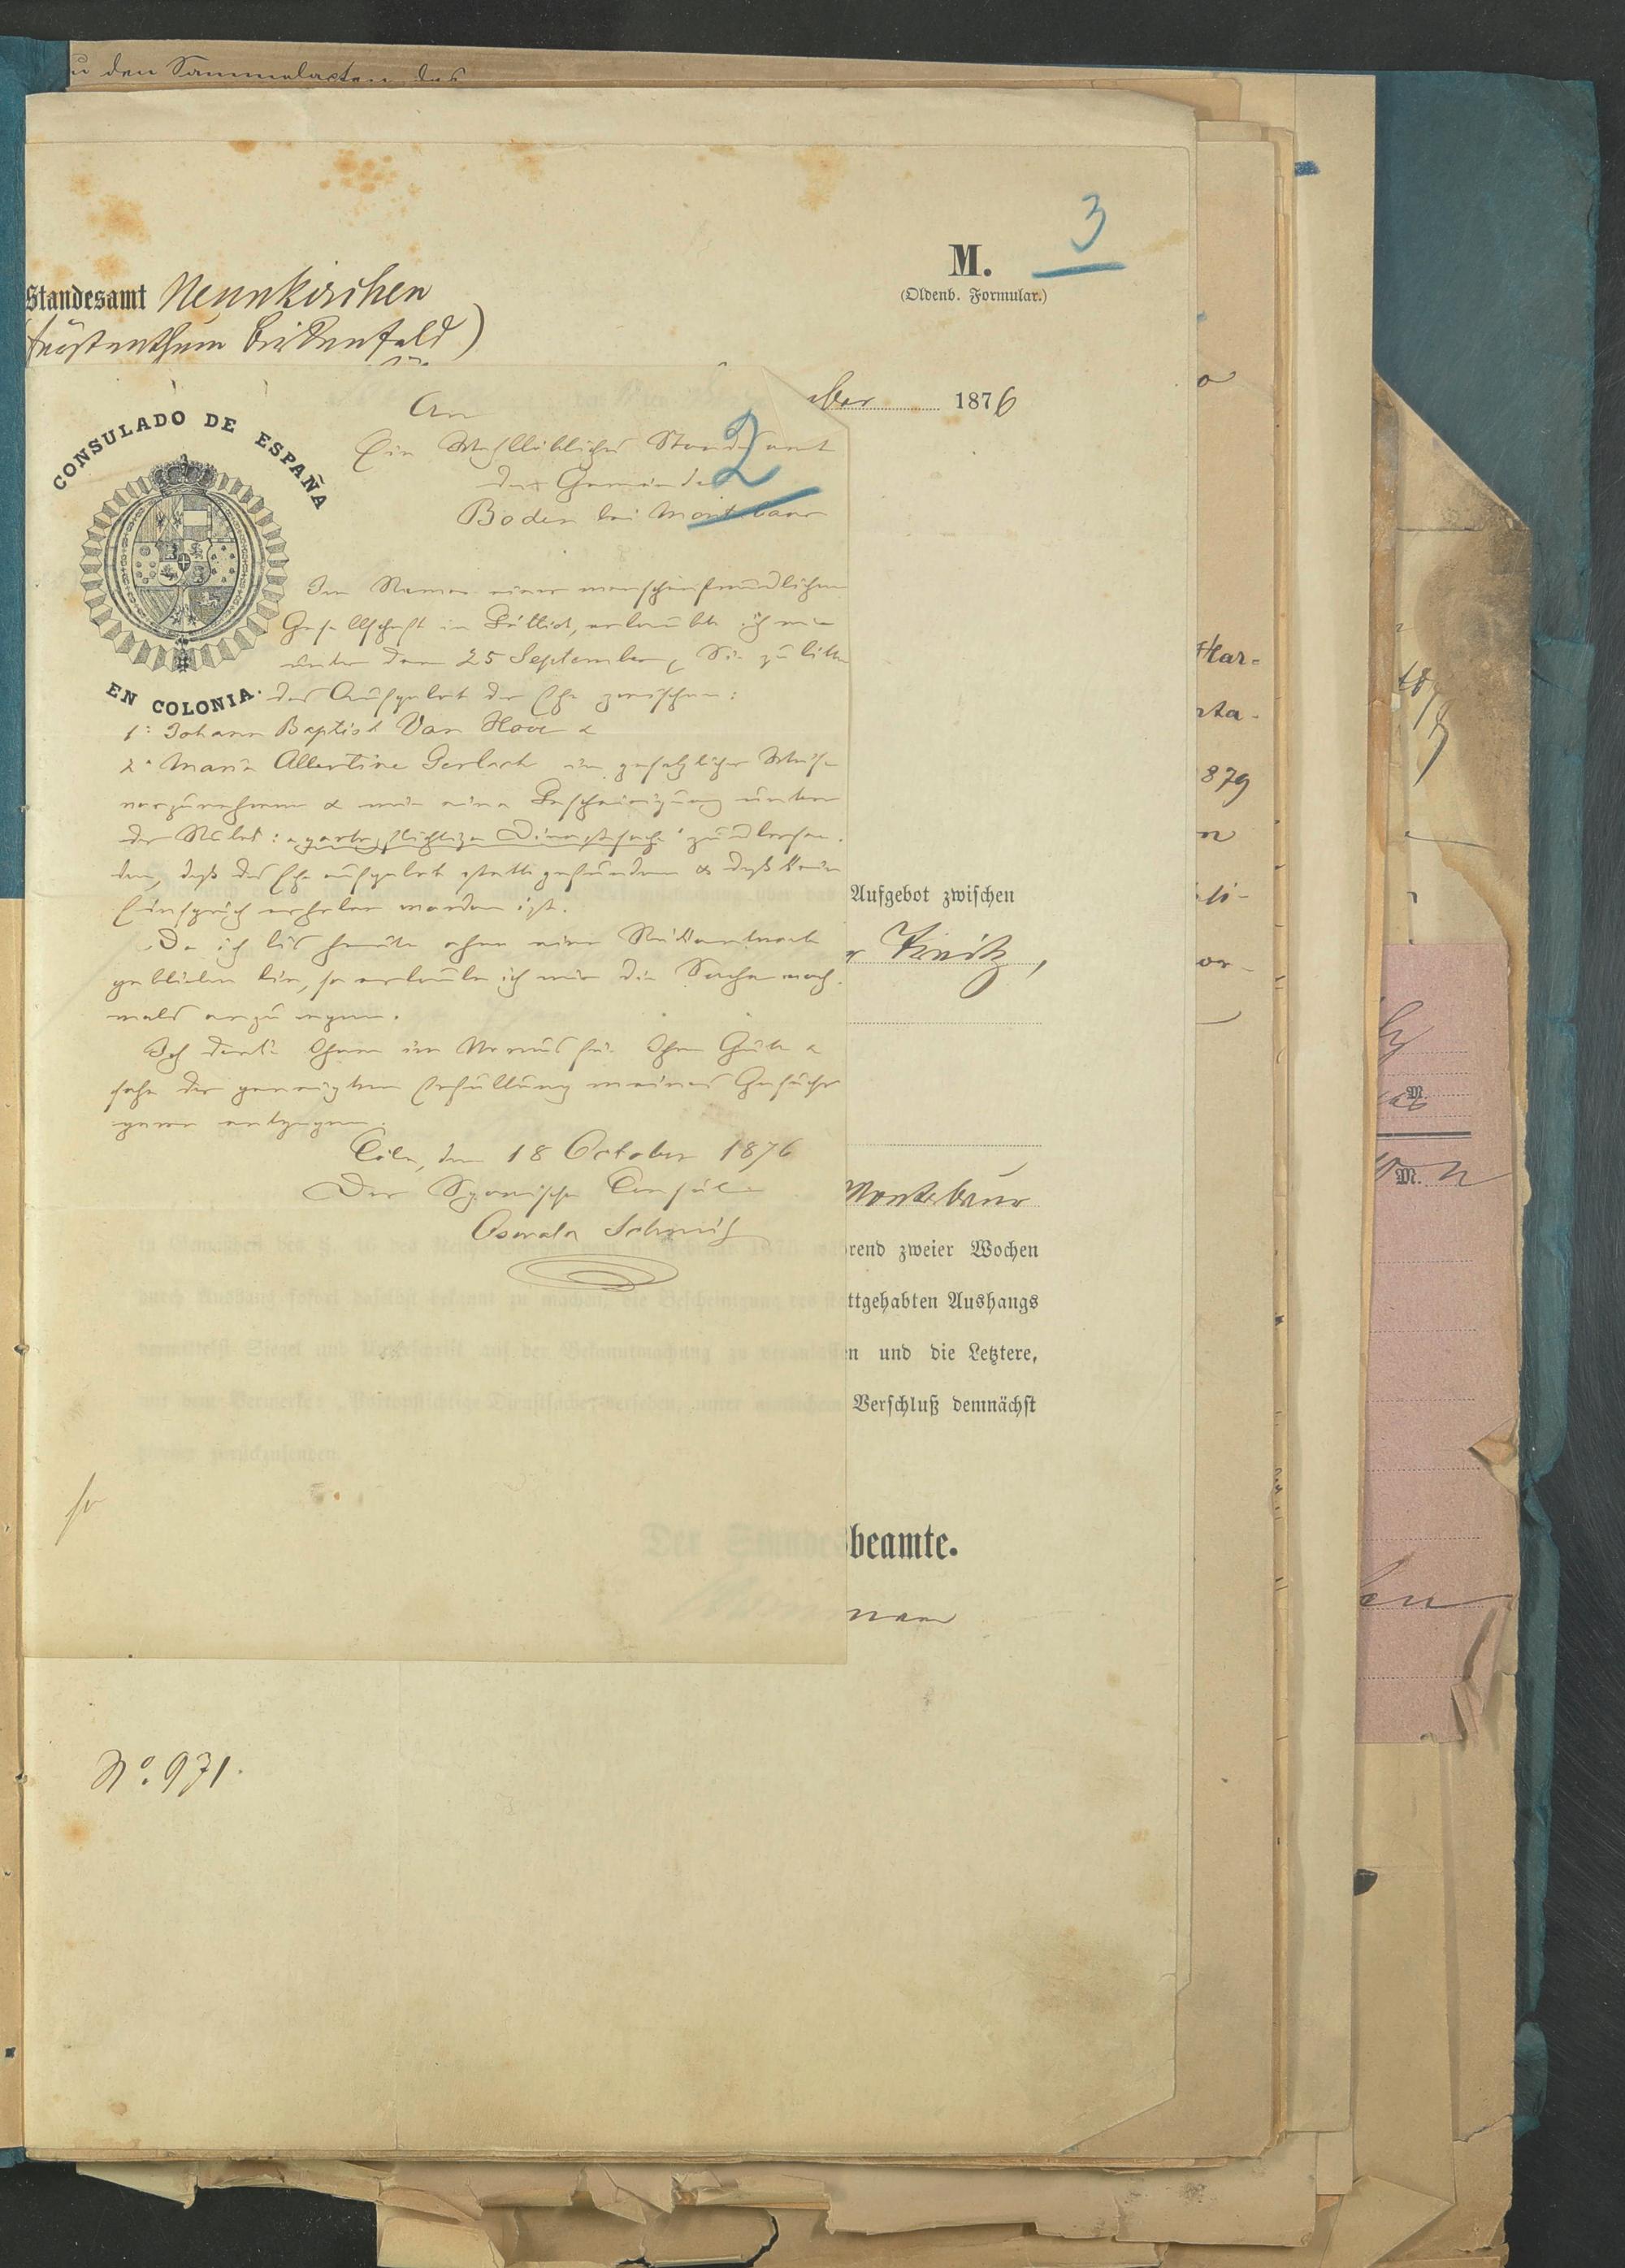 zu den Sammelacten des
3
M.
(Oldenb. Formular.)
Standesamt Neunkirchen
Fürstenthum Birkenfeld)
ber 1876
CONSULADO DE ESPAÑA
EN COLONIA.
An
Ein Wohllöbliches Standesamt
der Gemeinde
2
Boden bei Montabaur
Im Namen einer menschenfreundlichen
Gesellschaft in Lüttich, erlaubte ich mir
unter dem 25 September, Sie zu bitten
das Aufgebot der Ehe zwischen:
1: Johann Baptist Van Hove &
2. Maria Albertine Gerlach in gesetzlicher Weise
vorzunehmen & mir eine Bescheinigung unter
der Rubrik: "portopflichtige Dienstsache" zu übersen-
den, daß das Ehe aufgebot stattgefunden & daß kein
Einspruch erhoben worden ist.
Da ich bis heute ohne eine Rückantwort
geblieben bin, so erlaube ich mir die Sache noch-
mals anzuregen.
Ich danke Ihnen im Voraus für Ihre Güte &
sehe der geneigten Erfüllung meines Gesuchs
gerne entgegen.
Cöln, den 18 October 1876
Der Spanische Consul
Oswald
Aufgebot zwischen
Montabaur
rend zweier Wochen
ttgehabten Aushangs
n und die Letztere,
Verschluß demnächst
beamte.
No. 971.
Har-
rta-
879
n
li-
or-
M.
M.